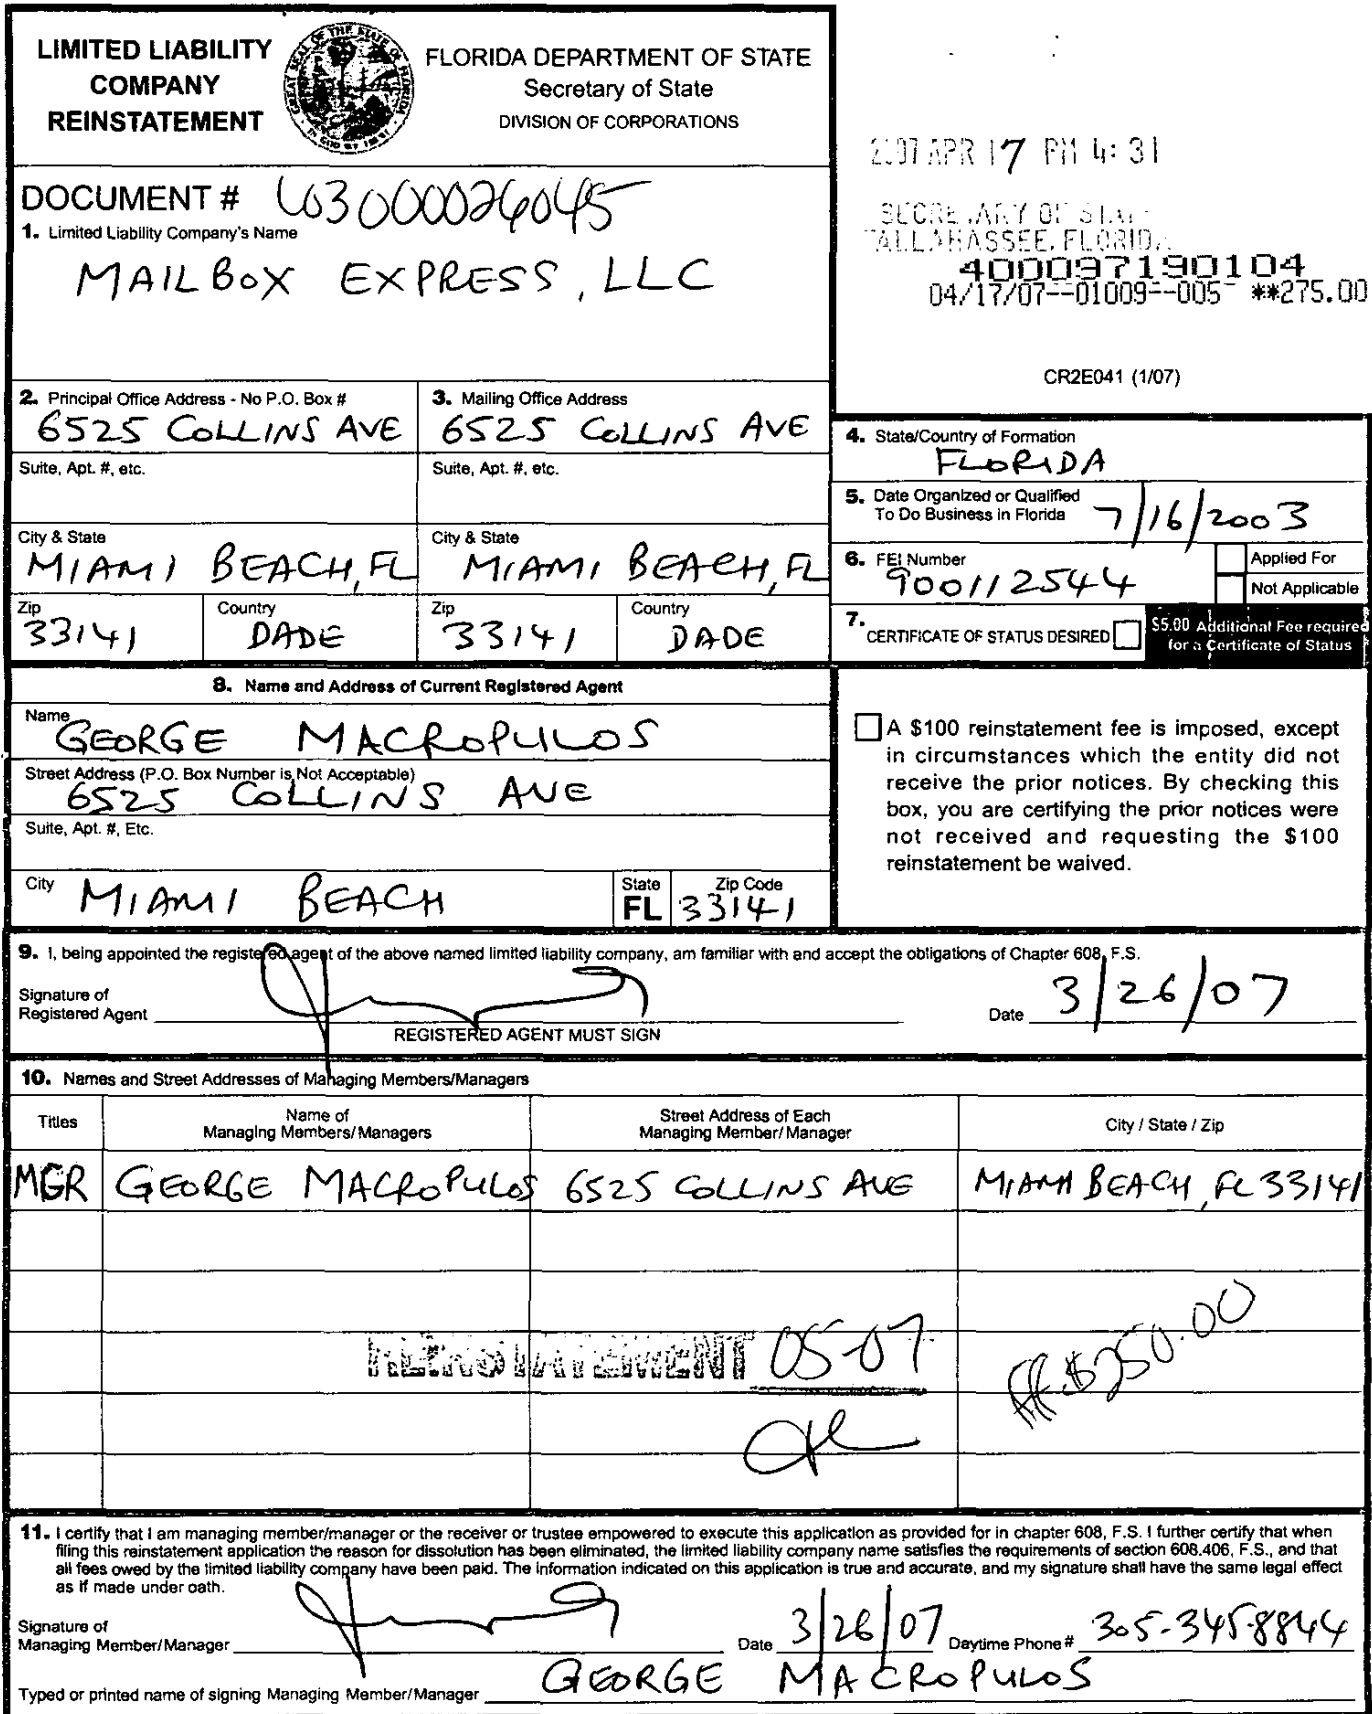 LIMITED LIABILITY
COMPANY
REINSTATEMENT
FLORIDA DEPARTMENT OF STATE
Secretary of State
DIVISION OF CORPORATIONS
2007 APR 17 PM 4:31
SECRETARY OF STATE
TALLAHASSEE, FLORIDA
400097190104
04/17/07--01009--005 **275.00
CR2E041 (1/07)
DOCUMENT # L03000026045
1. Limited Liability Company's Name
MAILBOX EXPRESS, LLC
2. Principal Office Address - No P.O. Box #
6525 COLLINS AVE
3. Mailing Office Address
6525 COLLINS AVE
Suite, Apt. #, etc.
Suite, Apt. #, etc.
City & State
MIAMI BEACH, FL
City & State
MIAMI BEACH, FL
Zip
33141
Country
DADE
Zip
33141
Country
DADE
4. State/Country of Formation
FLORIDA
5. Date Organized or Qualified
To Do Business in Florida 7/16/2003
6. FEI Number
900112544
Applied For
Not Applicable
7. CERTIFICATE OF STATUS DESIRED
$5.00 Additional Fee required
for a Certificate of Status
8. Name and Address of Current Registered Agent
Name
GEORGE MACROPULOS
Street Address (P.O. Box Number is Not Acceptable)
6525 COLLINS AVE
Suite, Apt. #, Etc.
City MIAMI BEACH
State
FL
Zip Code
33141
A $100 reinstatement fee is imposed, except
in circumstances which the entity did not
receive the prior notices. By checking this
box, you are certifying the prior notices were
not received and requesting the $100
reinstatement be waived.
9. I, being appointed the registered agent of the above named limited liability company, am familiar with and accept the obligations of Chapter 608, F.S.
Signature of
Registered Agent
REGISTERED AGENT MUST SIGN
Date 3/26/07
10. Names and Street Addresses of Managing Members/Managers
Titles
Name of
Managing Members/Managers
Street Address of Each
Managing Member/Manager
City / State / Zip
MGR GEORGE MACROPULOS 6525 COLLINS AVE MIAMI BEACH, FL 33141
REINSTATEMENT 05-07
$250.00
11. I certify that I am managing member/manager or the receiver or trustee empowered to execute this application as provided for in chapter 608, F.S. I further certify that when
filing this reinstatement application the reason for dissolution has been eliminated, the limited liability company name satisfies the requirements of section 608.406, F.S., and that
all fees owed by the limited liability company have been paid. The information indicated on this application is true and accurate, and my signature shall have the same legal effect
as if made under oath.
Signature of
Managing Member/Manager
Date 3/26/07 Daytime Phone # 305-345-8844
Typed or printed name of signing Managing Member/Manager GEORGE MACROPULOS